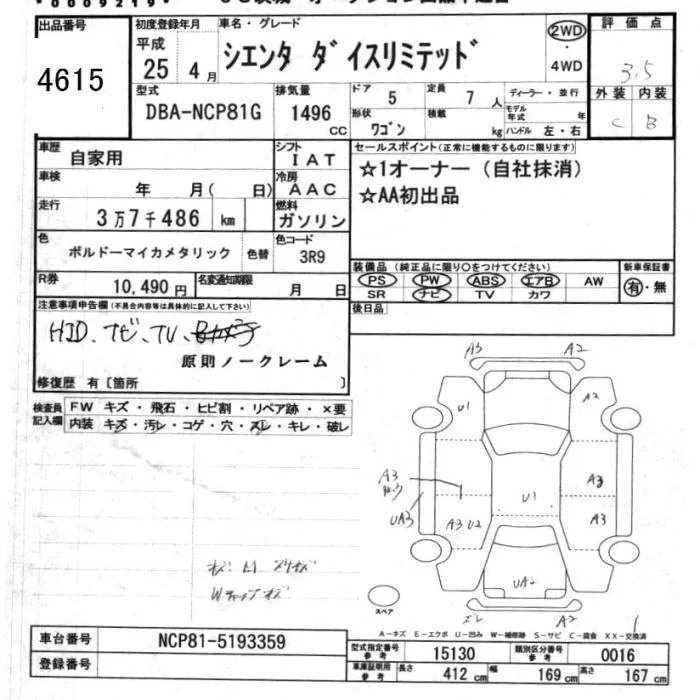 出品番号
4615
初度登録年月
平成
25 4 月
車名・グレード
シエンタ ダイスリミテッド
2WD
・
4WD
評価点
3.5
外装 内装
C B
型式
DBA-NCP81G
排気量
1496
cc
ドア
5
定員
7 人
ディーラー・並行
形状
ワゴン
積載
kg
モデル年式 年
ハンドル 左・右
車歴
自家用
シフト
IAT
車検
年 月( 日)
冷房
AAC
走行
3万7千486 km
燃料
ガソリン
色
ボルドーマイカメタリック
色替
色コード
3R9
R券
10,490円
名変通知期限
月 日
セールスポイント(正常に機能するものに限ります)
☆1オーナー(自社抹消)
☆AA初出品
装備品(純正品に限り○をつけてください)
PS PW ABS エアB AW
SR ナビ TV カワ
新車保証書
有・無
後日品
注意事項申告欄(不具合内容等は具体的に記入して下さい)
HID、ナビ、TV、
原則ノークレーム
修復歴 有〔箇所 〕
検査員記入欄
FW キズ・飛石・ヒビ割・リペア跡・×要
内装 キズ・汚レ・コゲ・穴・スレ・キレ・破レ
A3 A2
U1 A2
A3
A3
UA3
A3 U2
U1
A3
UA2
スレ A2
スペア
A-キズ E-エクボ U-凹み W-補修跡 S-サビ C-腐食 XX-交換済
車台番号
NCP81-5193359
登録番号
型式指定番号
参考
15130
類別区分番号
参考
0016
車庫証明用
参考
長さ 412 cm
幅 169 cm
高さ 167 cm